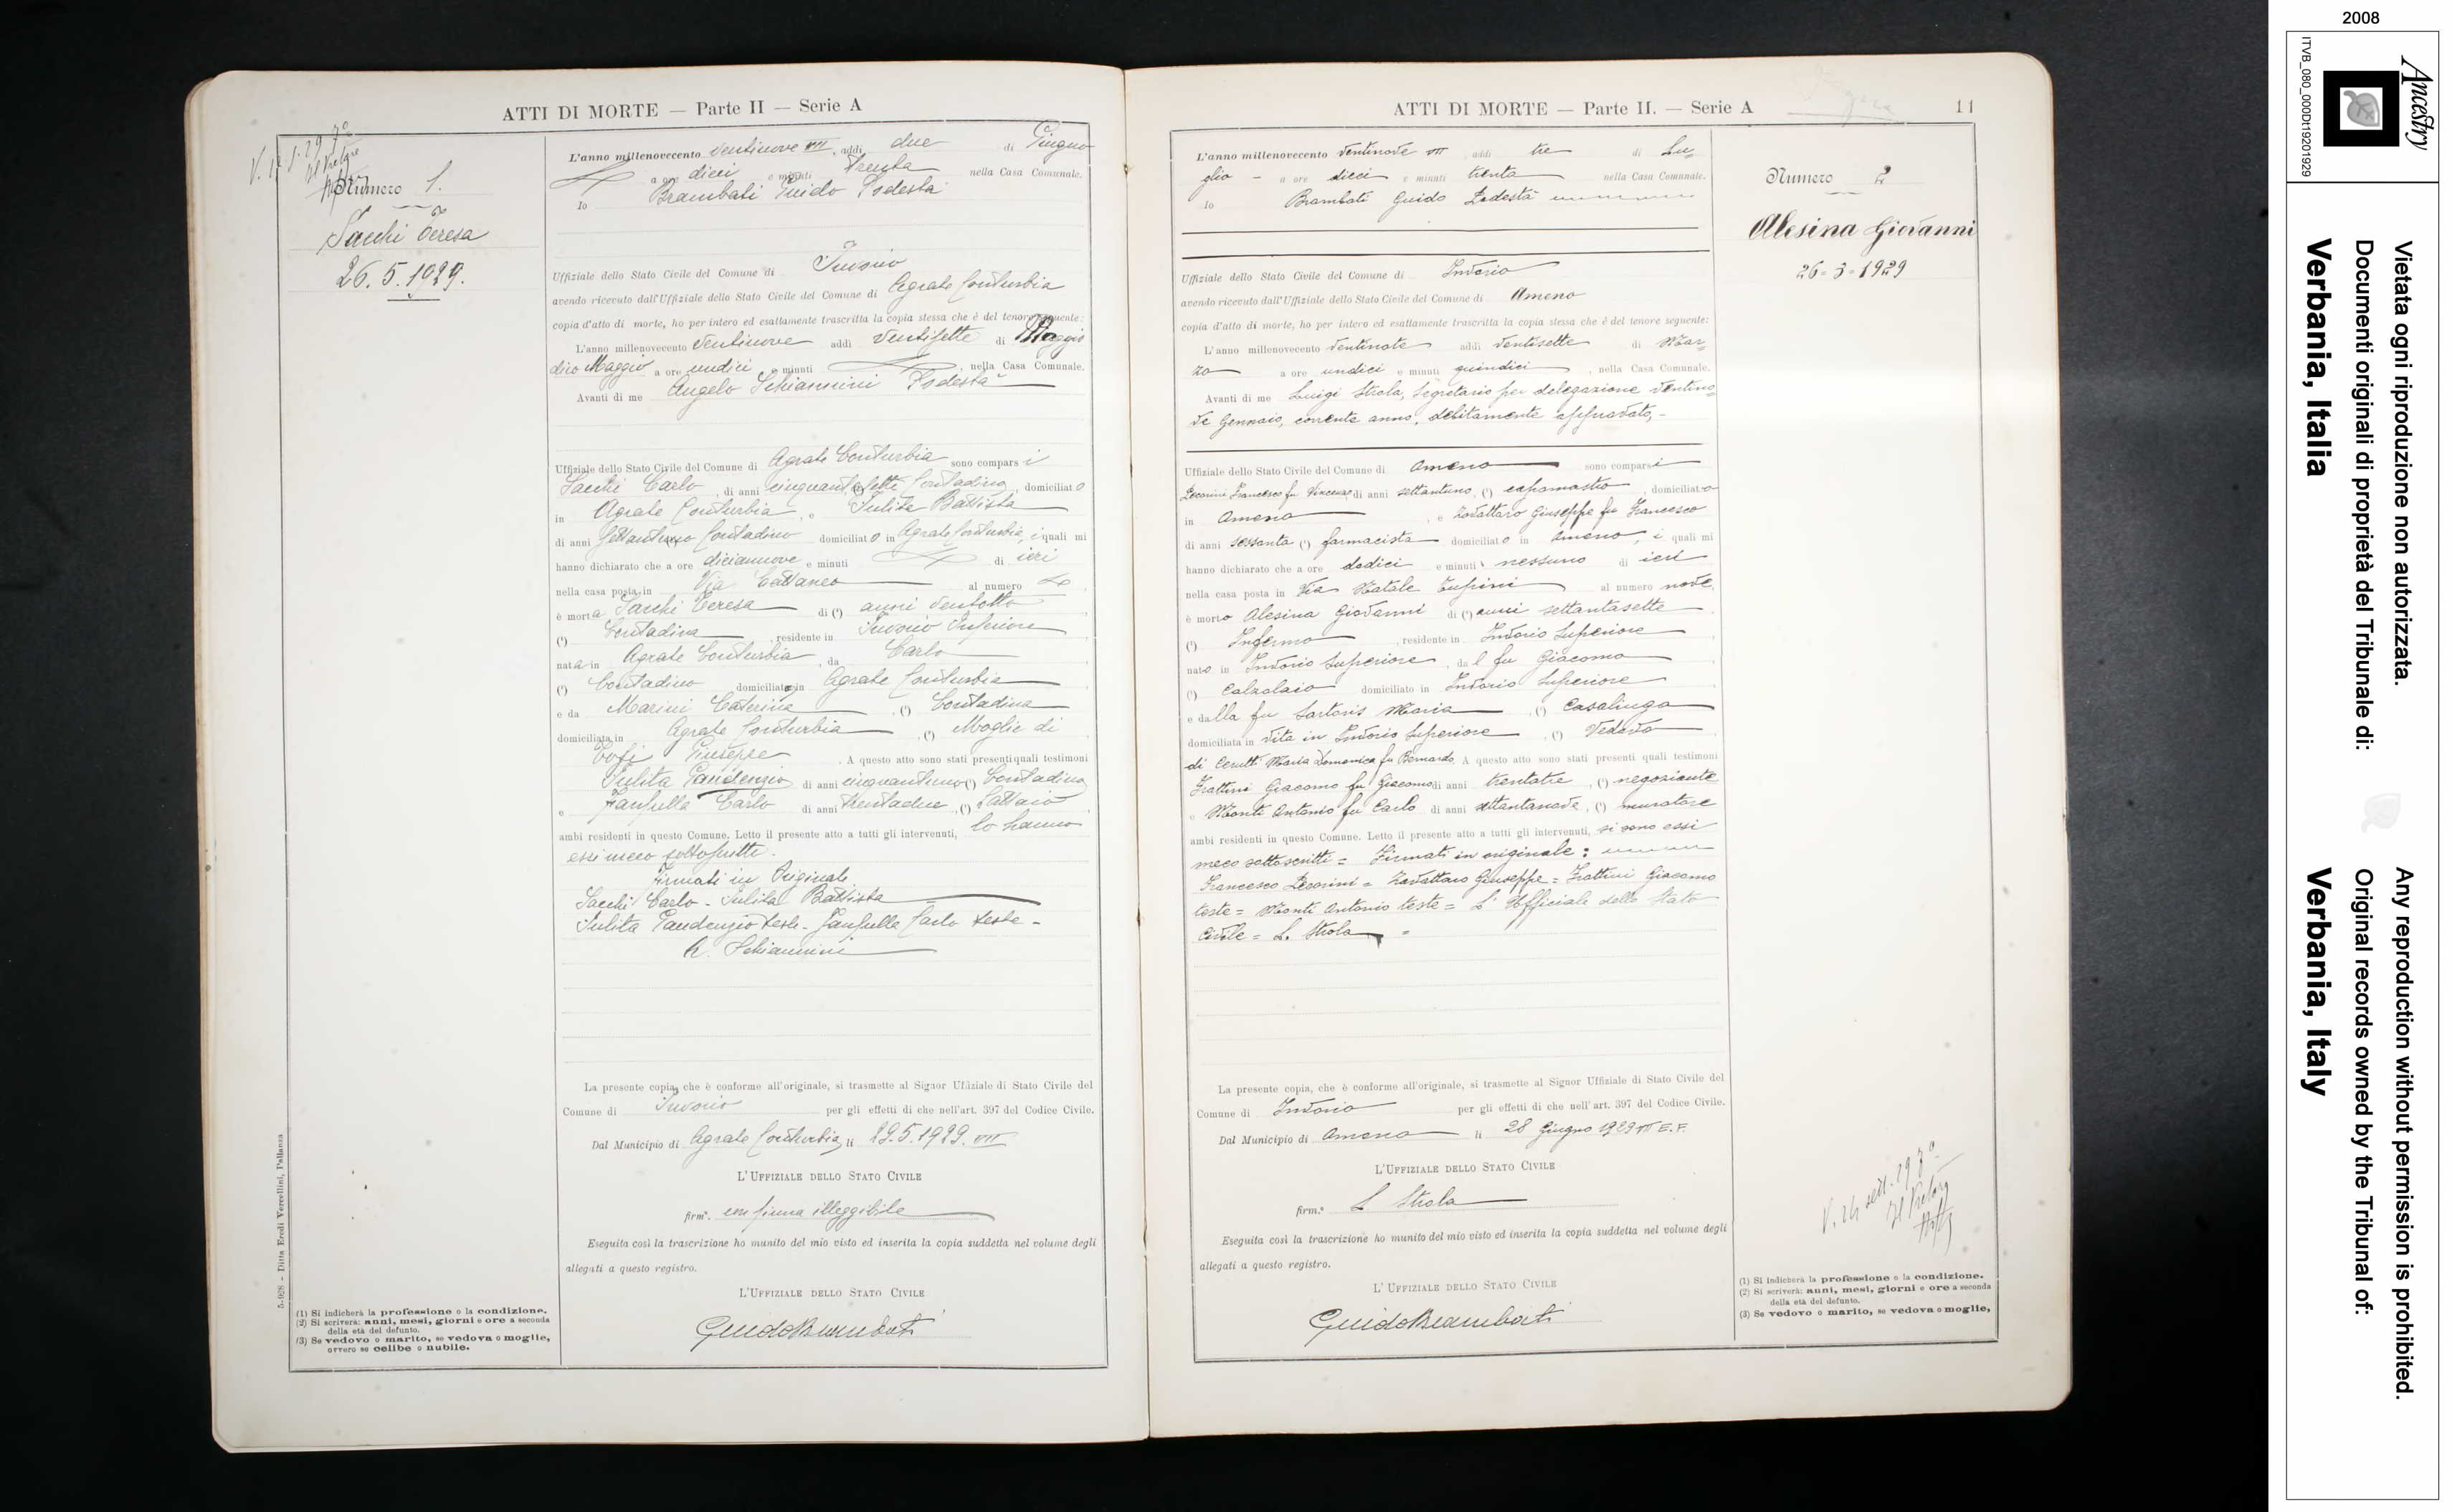 ATTI DI MORTE — Parte II — Serie A
Numero 1.
Sacchi Teresa
26.5.1929.
L'anno millenovecento ventinove VII, addì due di Giugno
a ore dieci e minuti trenta nella Casa Comunale.
Io Brambati Guido Podestà
Uffiziale dello Stato Civile del Comune di Invorio
avendo ricevuto dall'Uffiziale dello Stato Civile del Comune di Agrate Conturbia
copia d'atto di morte, ho per intero ed esattamente trascritta la copia stessa che è del tenore seguente:
L'anno millenovecento ventinove addì ventisette di Maggio
dico Maggio a ore undici e minuti , nella Casa Comunale.
Avanti di me Angelo Schiannini Podestà
Uffiziale dello Stato Civile del Comune di Agrate Conturbia sono comparsi
Sacchi Carlo, di anni cinquantasette (1) Contadino, domiciliato
in Agrate Conturbia, e Julita Battista
di anni settantuno (1) Contadino domiciliato in Agrate Conturbia, i quali mi
hanno dichiarato che a ore diciannove e minuti di ieri
nella casa posta in Via Cattaneo al numero
è morta Sacchi Teresa di (2) anni ventotto
(1) Contadina, residente in Invorio Inferiore
nata in Agrate Conturbia, da Carlo
(1) Contadino domiciliato in Agrate Conturbia
e da Marini Caterina, (1) Contadina
domiciliata in Agrate Conturbia, (3) Moglie di
Giuseppe. A questo atto sono stati presenti quali testimoni
Julita Gaudenzio di anni cinquantuno (1) Contadino
e Fanfulla Carlo di anni trentadue, (1) Lattaio
ambi residenti in questo Comune. Letto il presente atto a tutti gli intervenuti, lo hanno
essi meco sottoscritto.
Firmati in Originale
Sacchi Carlo - Julita Battista
Julita Gaudenzio teste - Fanfulla Carlo teste -
A. Schiannini
La presente copia, che è conforme all'originale, si trasmette al Signor Uffiziale di Stato Civile del
Comune di Invorio per gli effetti di che nell'art. 397 del Codice Civile.
Dal Municipio di Agrate Conturbia, li 29.5.1929. VII
L'UFFIZIALE DELLO STATO CIVILE
firmº. con firma illeggibile
Eseguita così la trascrizione ho munito del mio visto ed inserita la copia suddetta nel volume degli
allegati a questo registro.
L'UFFIZIALE DELLO STATO CIVILE
Guido Brambati
(1) Si indicherà la professione o la condizione.
(2) Si scriverà: anni, mesi, giorni e ore a seconda
della età del defunto.
(3) Se vedovo o marito, se vedova o moglie,
ovvero se celibe o nubile.
5-928 - Ditta Eredi Vercellini, Pallanza
ATTI DI MORTE — Parte II. — Serie A
11
Numero 2
Alesina Giovanni
26-3-1929
L'anno millenovecento ventinove VII addì tre di Lu=
glio - a ore dieci e minuti trenta nella Casa Comunale.
Io Brambati Guido Podestà
Uffiziale dello Stato Civile del Comune di Invorio
avendo ricevuto dall'Uffiziale dello Stato Civile del Comune di Ameno
copia d'atto di morte, ho per intero ed esattamente trascritta la copia stessa che è del tenore seguente:
L'anno millenovecento ventinove addì ventisette di Mar=
zo a ore undici e minuti quindici, nella Casa Comunale.
Avanti di me Luigi Strola, Segretario per delegazione ventino=
ve Gennaio, corrente anno, debitamente approvato, -
Uffiziale dello Stato Civile del Comune di Ameno sono comparsi
Pecorini Francesco fu Vincenzo, di anni settantuno, (1) capomastro, domiciliato
in Ameno, e Zavattaro Giuseppe fu Francesco
di anni sessanta (1) farmacista domiciliato in Ameno, i quali mi
hanno dichiarato che a ore dodici e minuti nessuno di ieri
nella casa posta in Via Natale al numero nove,
è morto Alesina Giovanni di (2) anni settantasette
(1) Infermo, residente in Invorio Superiore
nato in Invorio Superiore, dal fu Giacomo
(1) Calzolaio domiciliato in Invorio Superiore
e dalla fu Sartoris Maria (1) Casalinga
domiciliata in vita in Invorio Superiore, (3) Vedovo
di Cerutti Maria Domenica fu Bernardo. A questo atto sono stati presenti quali testimoni
Frattini Giacomo fu Giacomo di anni trentatre, (1) negoziante
e Monti Antonio fu Carlo di anni ottantanove, (1) muratore
ambi residenti in questo Comune. Letto il presente atto a tutti gli intervenuti, si sono essi
meco sottoscritti = Firmati in originale:
Francesco Pecorini = Zavattaro Giuseppe = Frattini Giacomo
teste = Monti Antonio teste = L'Ufficiale dello Stato
Civile = L. Strola =
La presente copia, che è conforme all'originale, si trasmette al Signor Uffiziale di Stato Civile del
Comune di Invorio per gli effetti di che nell'art. 397 del Codice Civile.
Dal Municipio di Ameno li 28 Giugno 1929 VII E.F.
L'UFFIZIALE DELLO STATO CIVILE
firm.º L Strola
Eseguita così la trascrizione ho munito del mio visto ed inserita la copia suddetta nel volume degli
allegati a questo registro.
L'UFFIZIALE DELLO STATO CIVILE
Guido Brambati
(1) Si indicherà la professione o la condizione.
(2) Si scriverà: anni, mesi, giorni e ore a seconda
della età del defunto.
(3) Se vedovo o marito, se vedova o moglie,
2008
Ancestry
ITVB_080_000Dt19201929
Vietata ogni riproduzione non autorizzata.
Documenti originali di proprietà del Tribunale di:
Verbania, Italia
Any reproduction without permission is prohibited.
Original records owned by the Tribunal of:
Verbania, Italy